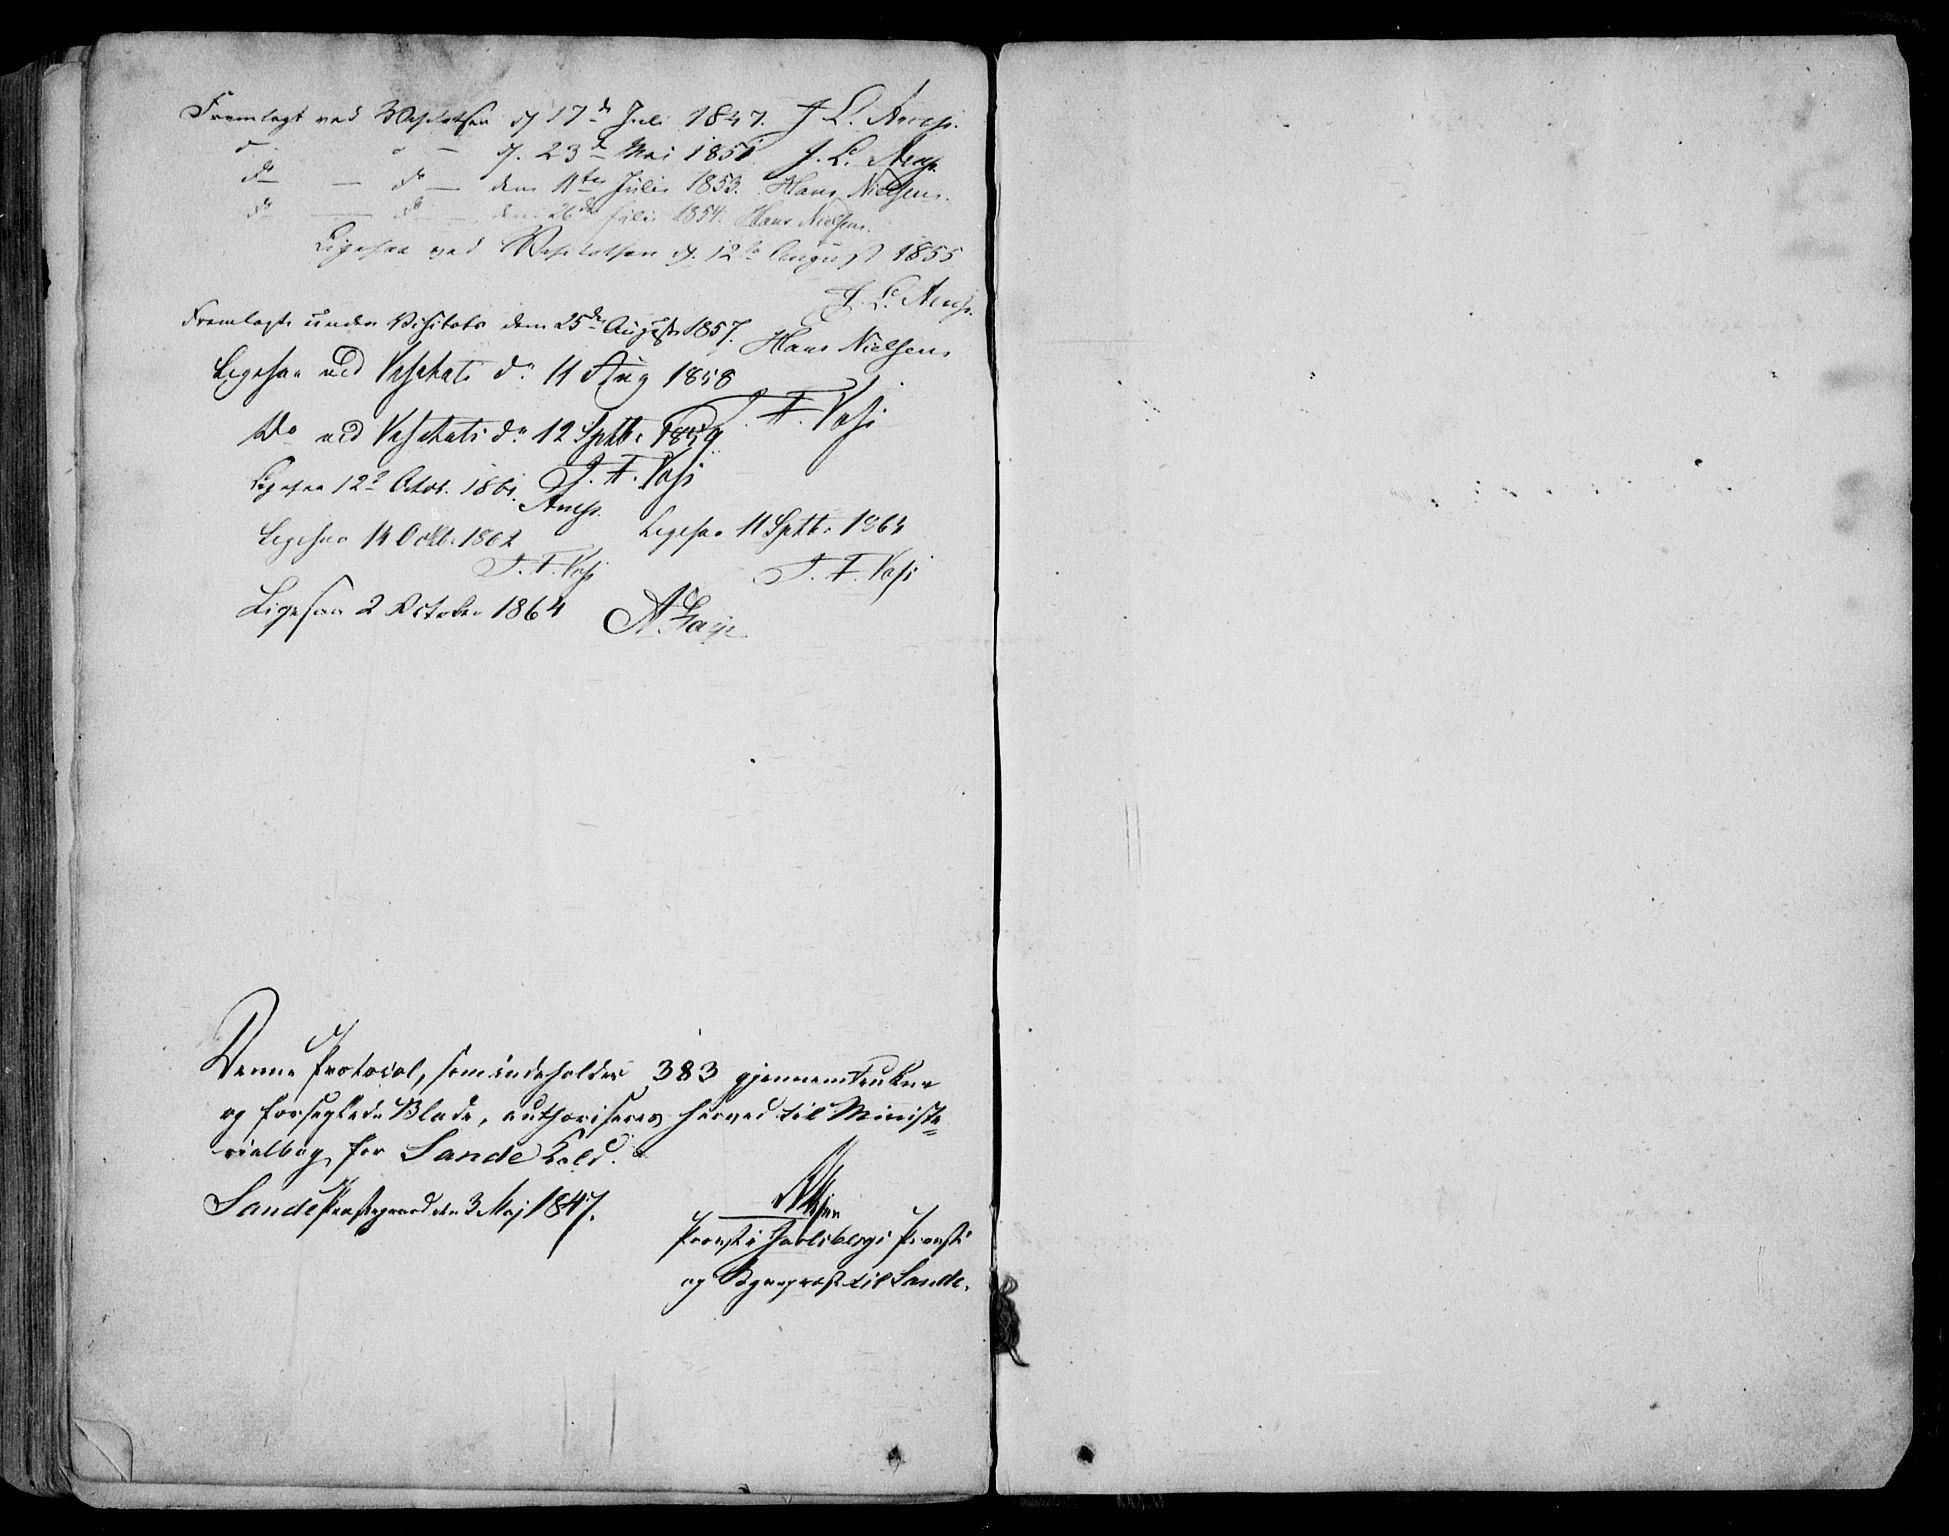 Fremlagt ved Visitatsen d 17de Juli 1847. J L. Arup.
do do — d. 23de Mai 1851 J. L. Arup.
do — do — den 11te Julii 1853. Hans Nielsen.
do — do — den 26de Juli 1854. Hans Nielsen.
Ligesaa ved Visitatsen d. 12te August 1855
J. L. Arup.
Fremlagt under Visitats den 25de August 1857.
Hans Nielsen
Ligesaa ved Visitats dn 11 Aug 1858
J. F. Voss
Do ved Visitats dn 12 Septb: 1859
J. F. Voss
Ligesaa 12te Octob. 1861.
Arup.
Ligesaa 14 Octb: 1862
J. F. Voss
Ligesaa 11 Septb: 1863
J. F. Voss
Ligesaa 2 October 1864 A. Faye
Denne Protocol, som indeholder 383 gjennemtrukne
og forseglede Blade, authoriseres herved til Ministe=
rialbog for Sande Kald.
Sande Præstegaard den 3 Maj 1847.
Provst i Jarlsbergs Provsti
og Sognepræst til Sande.